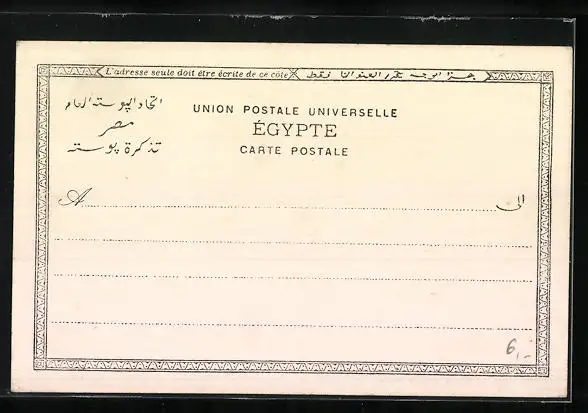 L'adresse seule doit être écrite de ce côté
هذا الوجه يحرر العنوان فقط
اتحاد البوسته العام
مصر
تذكرة بوسته
UNION POSTALE UNIVERSELLE
ÉGYPTE
CARTE POSTALE
A
الى
6,-